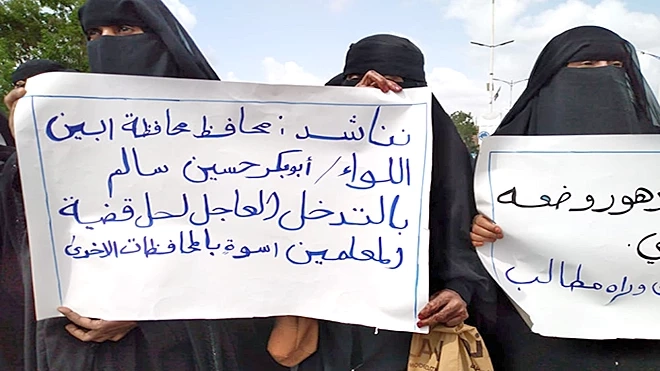 نناشد : محافظ محافظة ابين
اللواء / أبوبكر حسين سالم
بالتدخل العاجل لحل قضية
المعلمين اسوة بالمحافظات الاخرى
وضعه
وراه مطالب